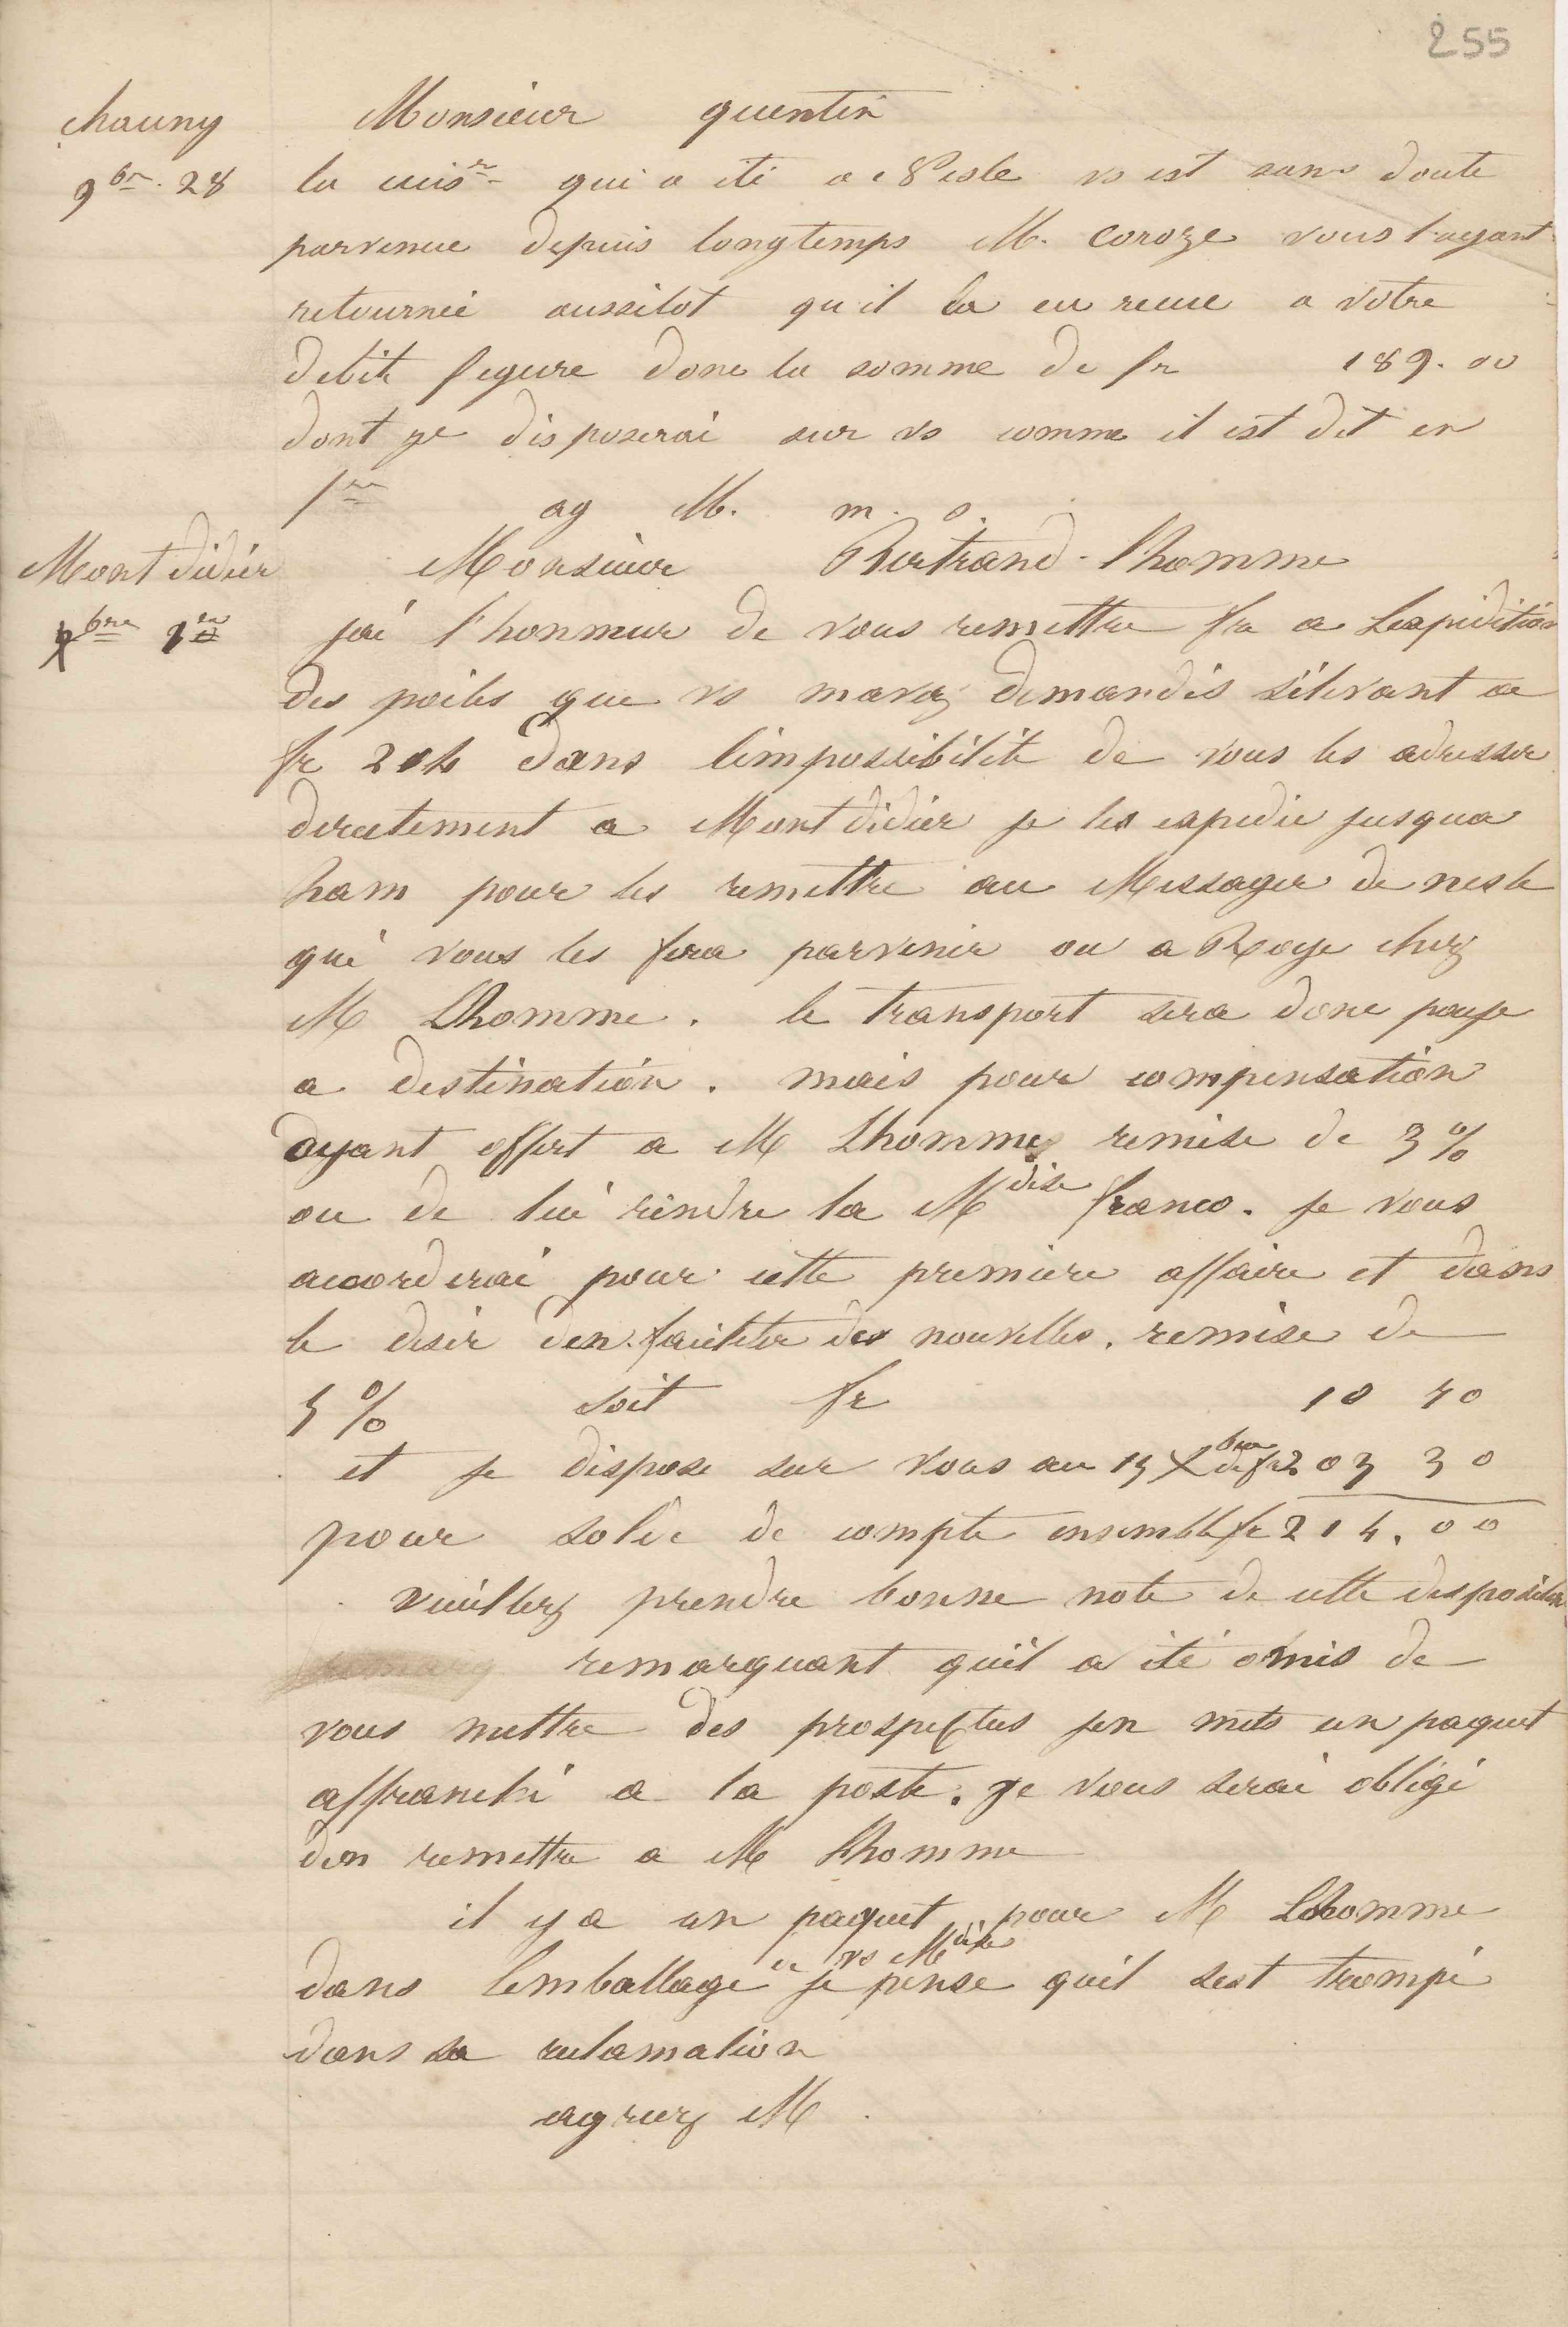 255
chauny
9bre 28
Monsieur quentin
la cuisre qui a été a nesle vs est sans doute
parvenue depuis longtemps M. Coroze vous l'ayant
retournée aussitot qu'il la eu recue a votre
debit figure donc la somme de fr 189.00
dont je disposerai sur vs comme il est dit en
fre
ag M. m. s.
Mont didier
Xbre 1er
Monsieur Bertrand-Lhomme
jai l'honneur de vous remettre fre a Lexpédition
des poeles que vs mavez demandés s'élevant a
fr 214 dans l'impossibilité de vous les adresser
directement a Mont didier je les expedie jusqua
ham pour les remettre au Messager de nesle
qui vous les fera parvenir ou a Roye chez
M Lhomme. le transport sera donc payé
a destination. mais pour compensation
ayant offert a M Lhomme remise de 3%
ou de lui rendre la Mdise franco. je vous
accorderai pour cette premiere affaire et dans
le desir d'en faciliter des nouvelles. remise de
5% soit fr 10 70
et je dispose sur vous au 15 Xbre de fr 203 30
pour solde de compte ensemble fr 214.00
veuillez prendre bonne note de cette disposition
remarquant qu'il a été omis de
vous mettre des prospectus j'en mets un paquet
affranchi a la poste. je vous serai obligé
d'en remettre a M Lhomme
il y a un paquet pour M Lhomme
dans l'emballage de vs Mdise je pense quil sest trompé
dans sa reclamation
agreez M.